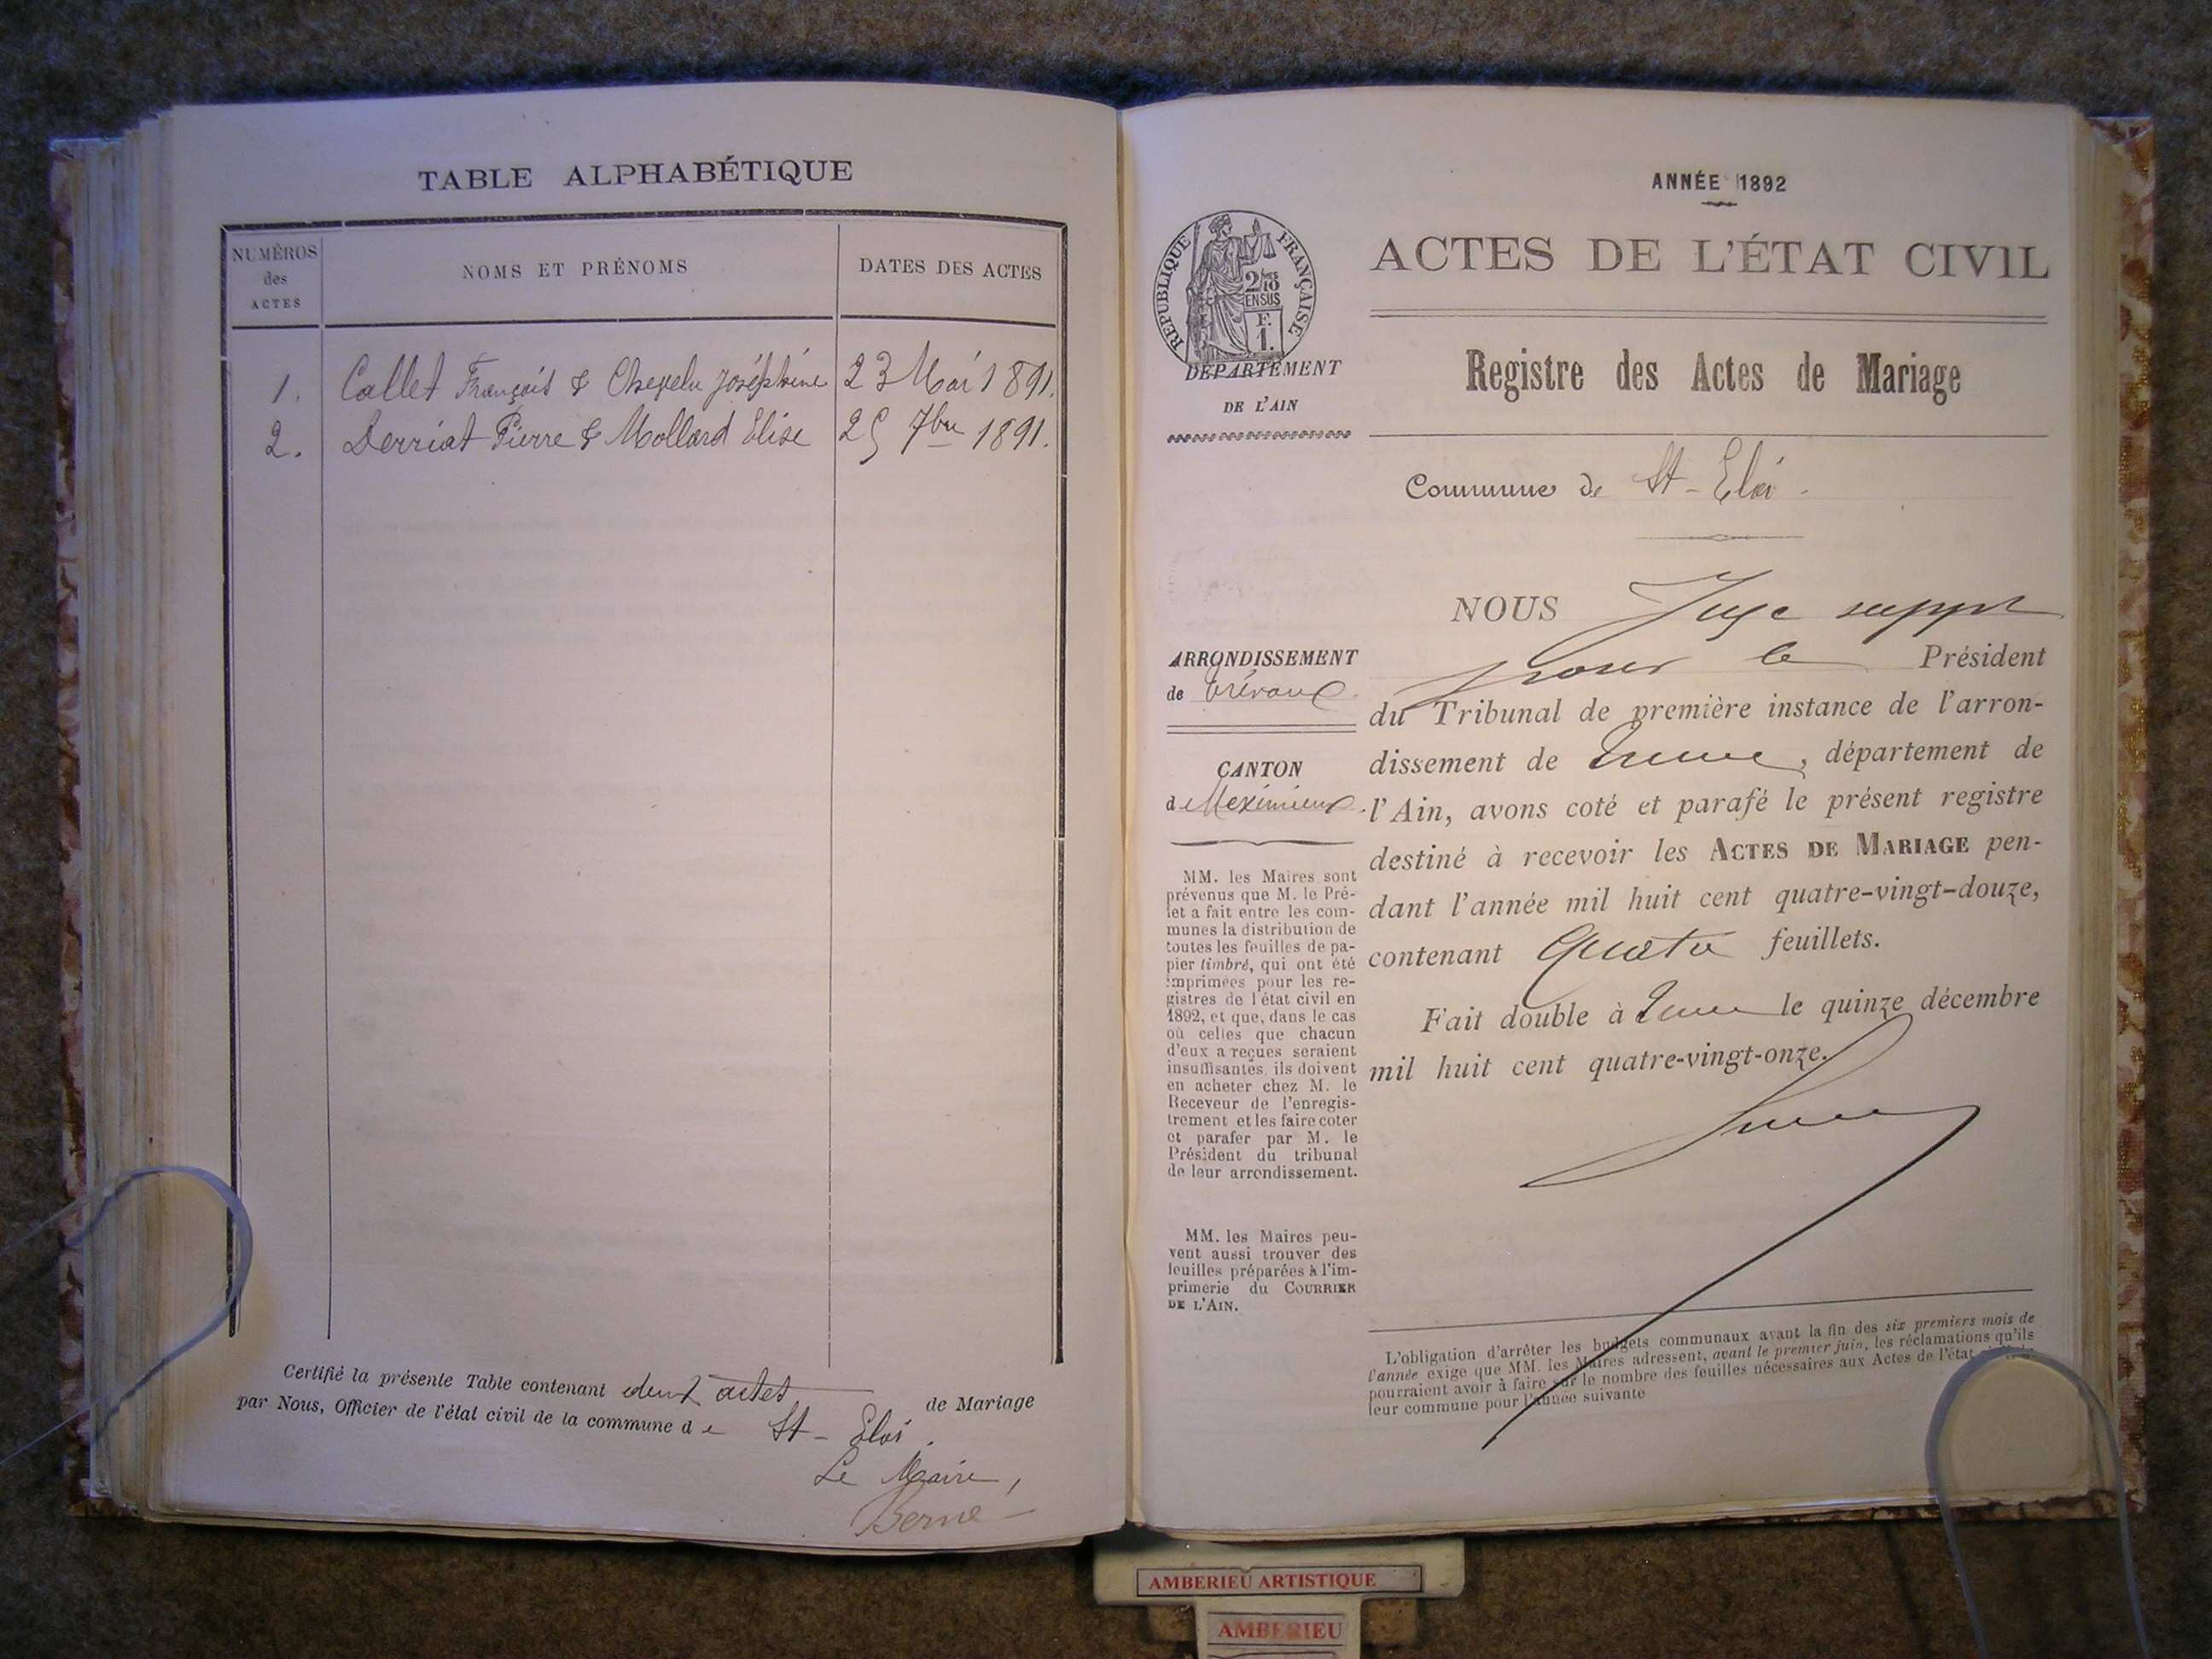 TABLE ALPHABÉTIQUE
NUMÉROS
des
ACTES
NOMS ET PRÉNOMS
DATES DES ACTES
1. Callet François & Chepelu Joséphine 23 Mai 1891.
2. Derriat Pierre & Mollard Elise 25 7bre 1891.
Certifié la présente Table contenant deux actes de Mariage
par Nous, Officier de l'état civil de la commune de St-Eloi.
Le Maire,
Berne
ANNÉE 1892
RÉPUBLIQUE FRANÇAISE
2/10
EN SUS
F.
1.
DÉPARTEMENT
DE L'AIN
ACTES DE L'ÉTAT CIVIL
Registre des Actes de Mariage
Commune de St-Eloi.
ARRONDISSEMENT
de Trévoux
CANTON
de Meximieux.
MM. les Maires sont
prévenus que M. le Pré-
fet a fait entre les com-
munes la distribution de
toutes les feuilles de pa-
pier timbré, qui ont été
imprimées pour les re-
gistres de l'état civil en
1892, et que, dans le cas
où celles que chacun
d'eux a reçues seraient
insuffisantes, ils doivent
en acheter chez M. le
Receveur de l'enregis-
trement et les faire coter
et parafer par M. le
Président du tribunal
de leur arrondissement.
MM. les Maires peu-
vent aussi trouver des
feuilles préparées à l'im-
primerie du COURRIER
DE L'AIN.
NOUS Juge suppt
pour le Président
du Tribunal de première instance de l'arron-
dissement de Trévoux, département de
l'Ain, avons coté et parafé le présent registre
destiné à recevoir les ACTES DE MARIAGE pen-
dant l'année mil huit cent quatre-vingt-douze,
contenant Quatre feuillets.
Fait double à Trévoux le quinze décembre
mil huit cent quatre-vingt-onze.
L'obligation d'arrêter les budgets communaux avant la fin des six premiers mois de
l'année exige que MM. les Maires adressent, avant le premier juin, les réclamations qu'ils
pourraient avoir à faire sur le nombre des feuilles nécessaires aux Actes de l'état
leur commune pour l'année suivante
AMBERIEU ARTISTIQUE
AMBERIEU